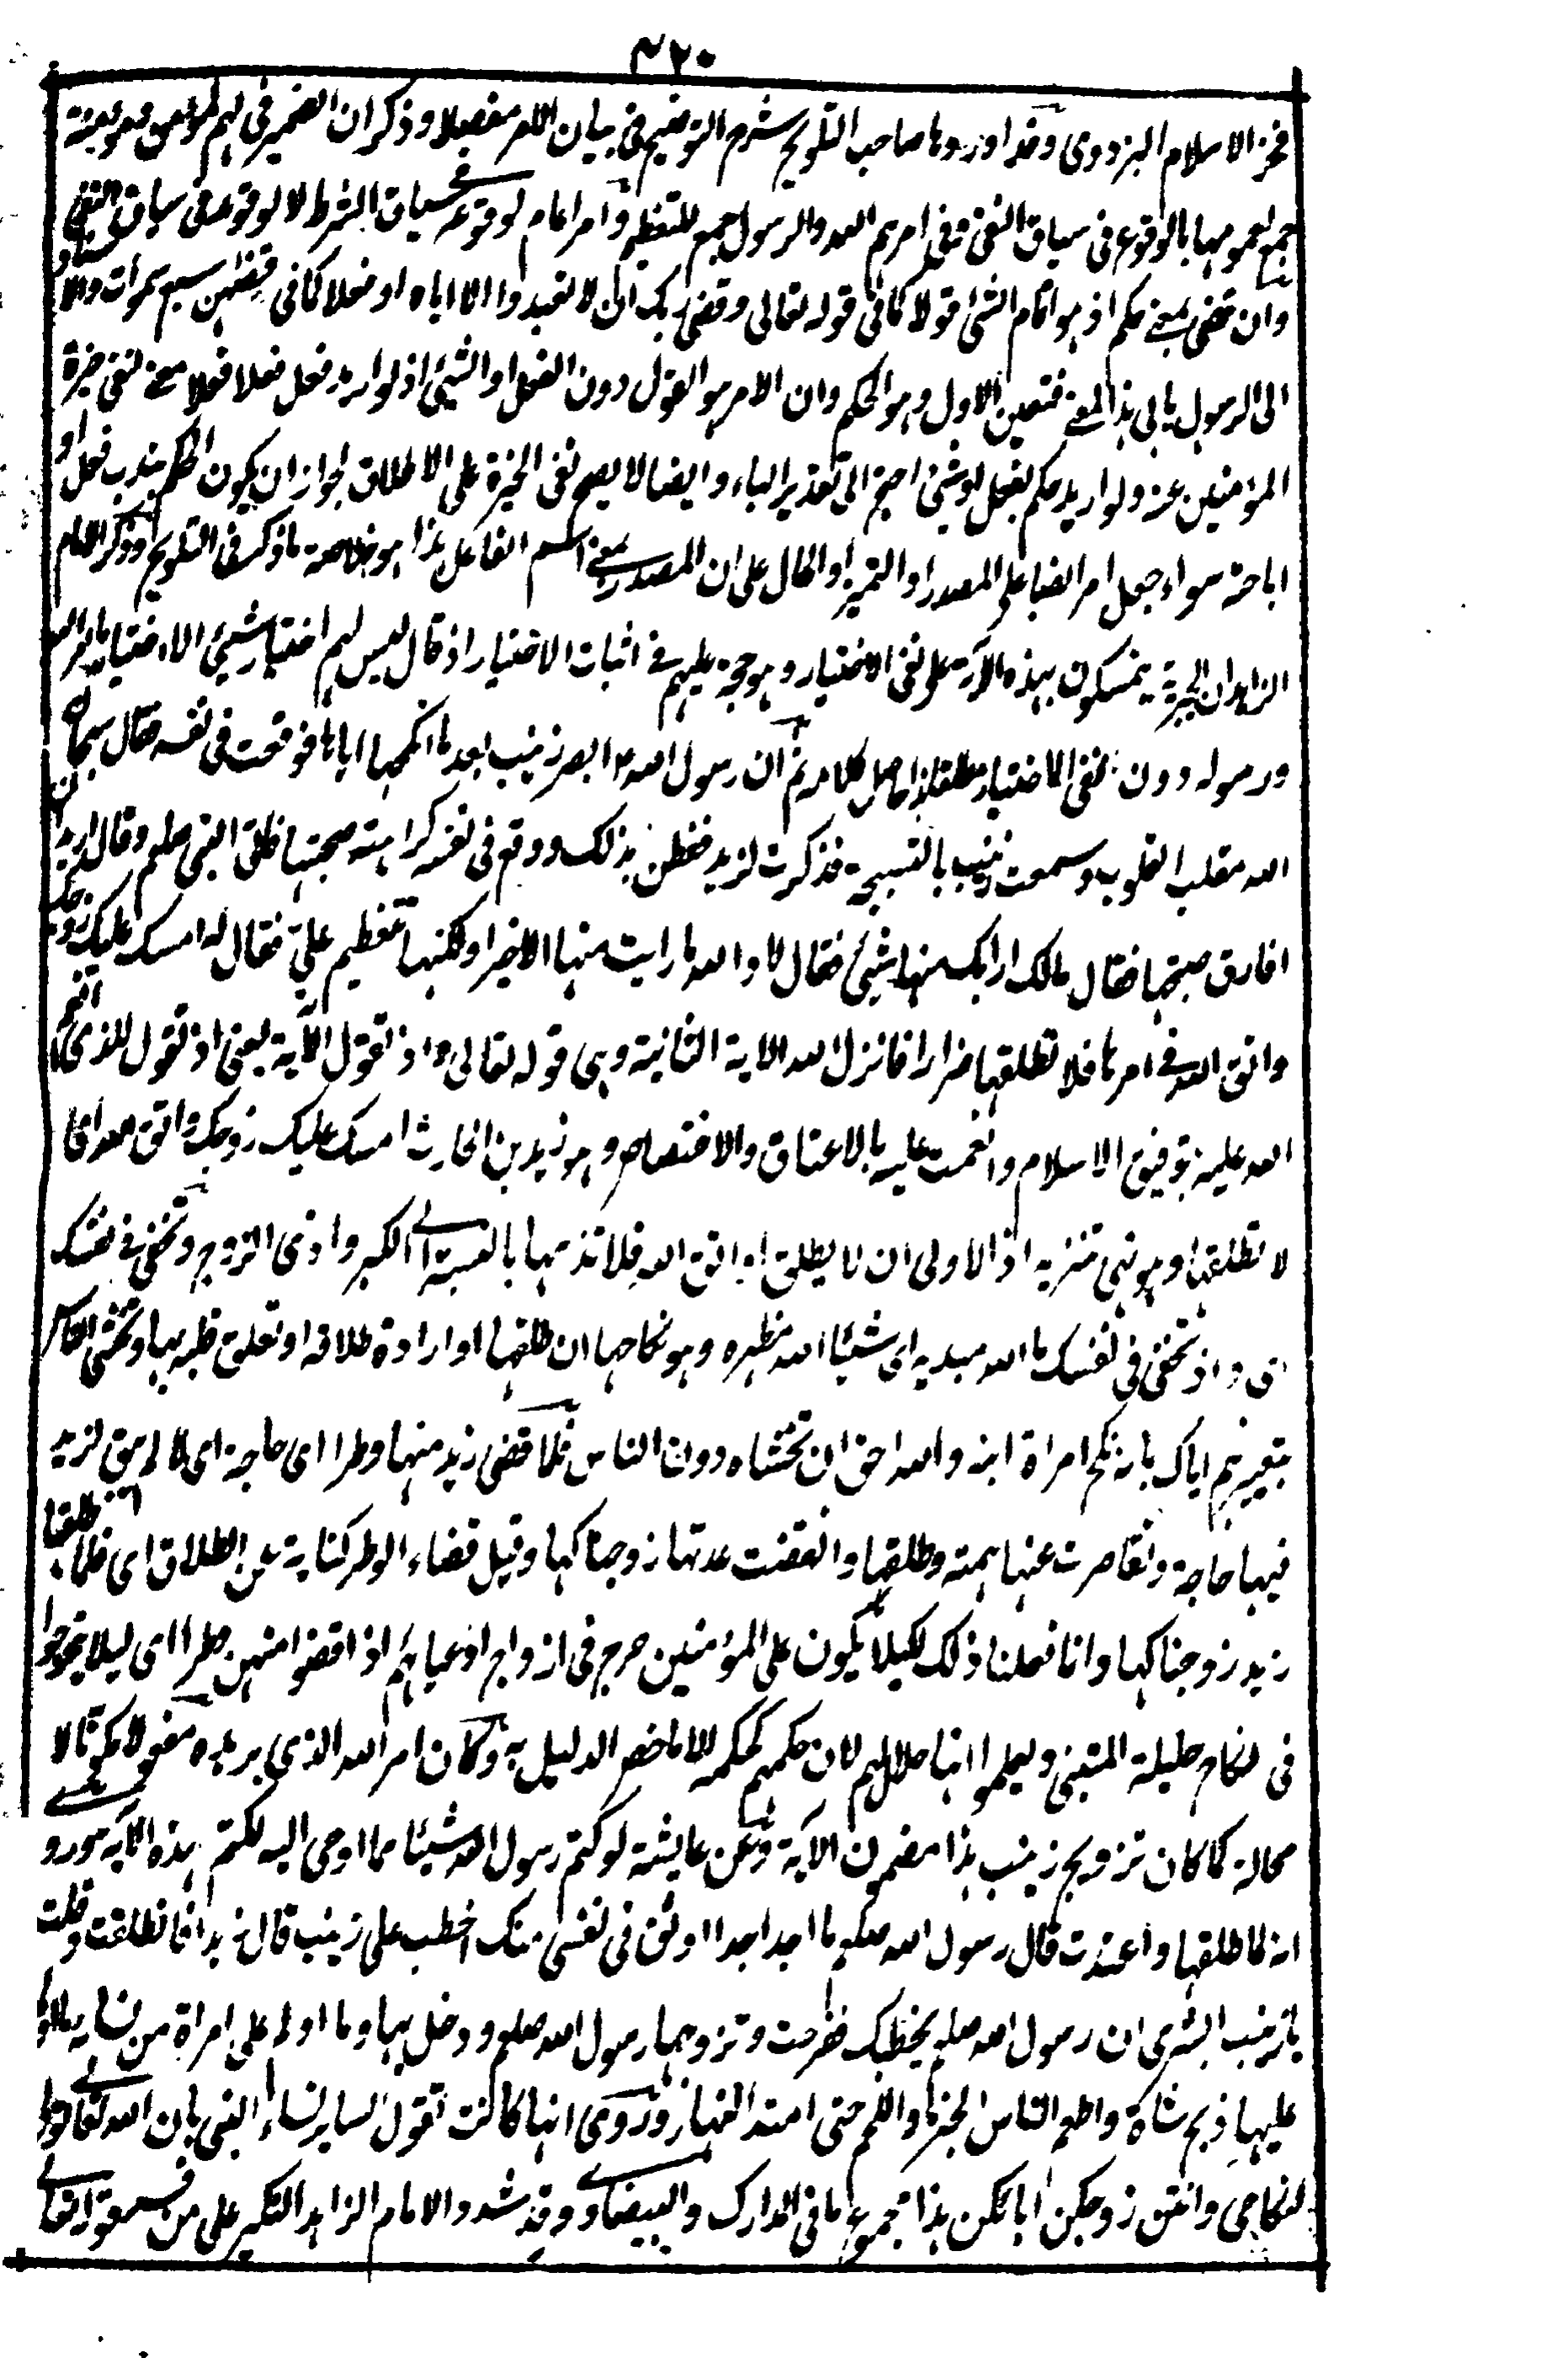 ٤٢٠
فخر الاسلام البزدوى وقد اوردها صاحب التلويح شرح التوضيح فى بيان الامر مفصلا وذكر ان الضمير فى لهم لمؤمن ومؤمنة
جمع لعمومهما بالوقوع فى سياق النفى وفى امرهم الله والرسول جمع للتعظيم وامرا عام لوقوعه فى سياق الشرط لا لوقوعه فى سياق النفى
وان قضى بمعنى حكم اذ هو اتمام الشئ قولا كما فى قوله تعالى وقضى ربك ان لا تعبدوا الا اياه او فعلا كما فى فقضهن سبع سموات والاسناد
الى الرسول يابى هذا المعنى فتعين الاول وهو الحكم وان الامر هو القول دون الفعل او الشئ اذ لو اريد فعل فعلا فلا معنى لنفى خيرة
المؤمنين عنه ولو اريد حكم بفعل او شئ احتج الى تقدير الباء وايضا لا يصح نفى الخيرة على الاطلاق لجواز ان يكون الحكم بندب فعل او
اباحته سواء جعل امرا نصبا على المصدر او التميز او الحال على ان المصدر بمعنى اسم الفاعل هذا هو خلاصة ما ذكر فى التلويح وذكر الامام
الزاهد ان الجبرية يتمسكون بهذه الآية على نفى الاختيار وهو حجة عليهم فى اثبات الاختيار اذ قال ليس لهم اختيار شئ الا اختيار ما امر الله
ورسوله دون نفى الاختيار مطلقا هذا حاصل كلامه ثم ان رسول الله ابصر زينب بعد ما انكحها اياه فوقعت فى نفسه فقال سبحان
الله مقلب القلوب وسمعت زينب بالتسبيحة فذكرت لزيد ففطن بذلك ووقع فى نفسه كراهته صحبتها فاتى النبى صلعم وقال اريد ان
افارق صحبتها فقال مالك ارابك منها شئ فقال لا والله ما رايت منها الا خيرا ولكنها تتعظم على فقال له امسك عليك زوجك
واتق الله فى امرها فلا تطلقها ضرارا فانزل الله الاية الثانية وهى قوله تعالى واذ تقول الآية يعنى اذ تقول للذى انعم
الله عليه بتوفيق الاسلام وانعمت عليه بالاعتاق والاختصاص وهو زيد بن الحارث امسك عليك زوجك واتق الله اى
لا تطلقها وهو نهى تنزيه اذ الاولى ان لا يطلق او اتق الله فلا تذمها بالنسبة الى الكبر واذى الزوج وتخفى فى نفسك
اى واذ تخفى فى نفسك ما الله مبديه اى شيئا الله مظهره وهو نكاحها ان طلقها او ارادة طلاقه او تعلق قلبه بها وتخشى الناس
بتعييرهم اياك بانه نكح امراة ابنه والله احق ان تخشاه دون الناس فلما قضى زيد منها وطرا اى حاجة اى لما لم يبق لزيد
فيها حاجة وتقاصرت عنها همته وطلقها وانقضت عدتها زوجناكها وقيل قضاء الوطر كناية عن الطلاق اى فلما طلقها
زيد زوجناكها وانا فعلنا ذلك لكيلا يكون على المؤمنين حرج فى ازواج ادعيائهم اذا قضوا منهن وطرا اى ليلا يتحرجوا
فى نكاح حليلة المتبنى وليعلموا انها حلال لهم لان حكمهم كحكمه الا ما خصه الدليل به وكان امر الله الذى يريده مفعولا مكونا لا
محالة كما كان تزويج زينب هذا مضمون الآية وعن عايشة لو كتم رسول الله شيئا مما اوحى اليه لكتم هذه الاية وروى
انه لما طلقها واعتدت قال رسول الله صلعم ما اجد احدا اوثق فى نفسى منك اخطب على زينب قال زيد فانطلقت وقلت
يا زينب ابشرى ان رسول الله صلعم يخطبك ففرحت وتزوجها رسول الله صلعم ودخل بها وما اولم على امراة من نسايه ما اولم
عليها ذبح شاة واطعم الناس الخبز واللحم حتى امتد النهار وروى انها كانت تقول لساير نساء النبى بان الله تعالى تولى
نكاحى وانتن زوجكن اباؤكن هذا مجموع ما فى المدارك والبيضاوى وقد شدد الامام الزاهد النكير على من